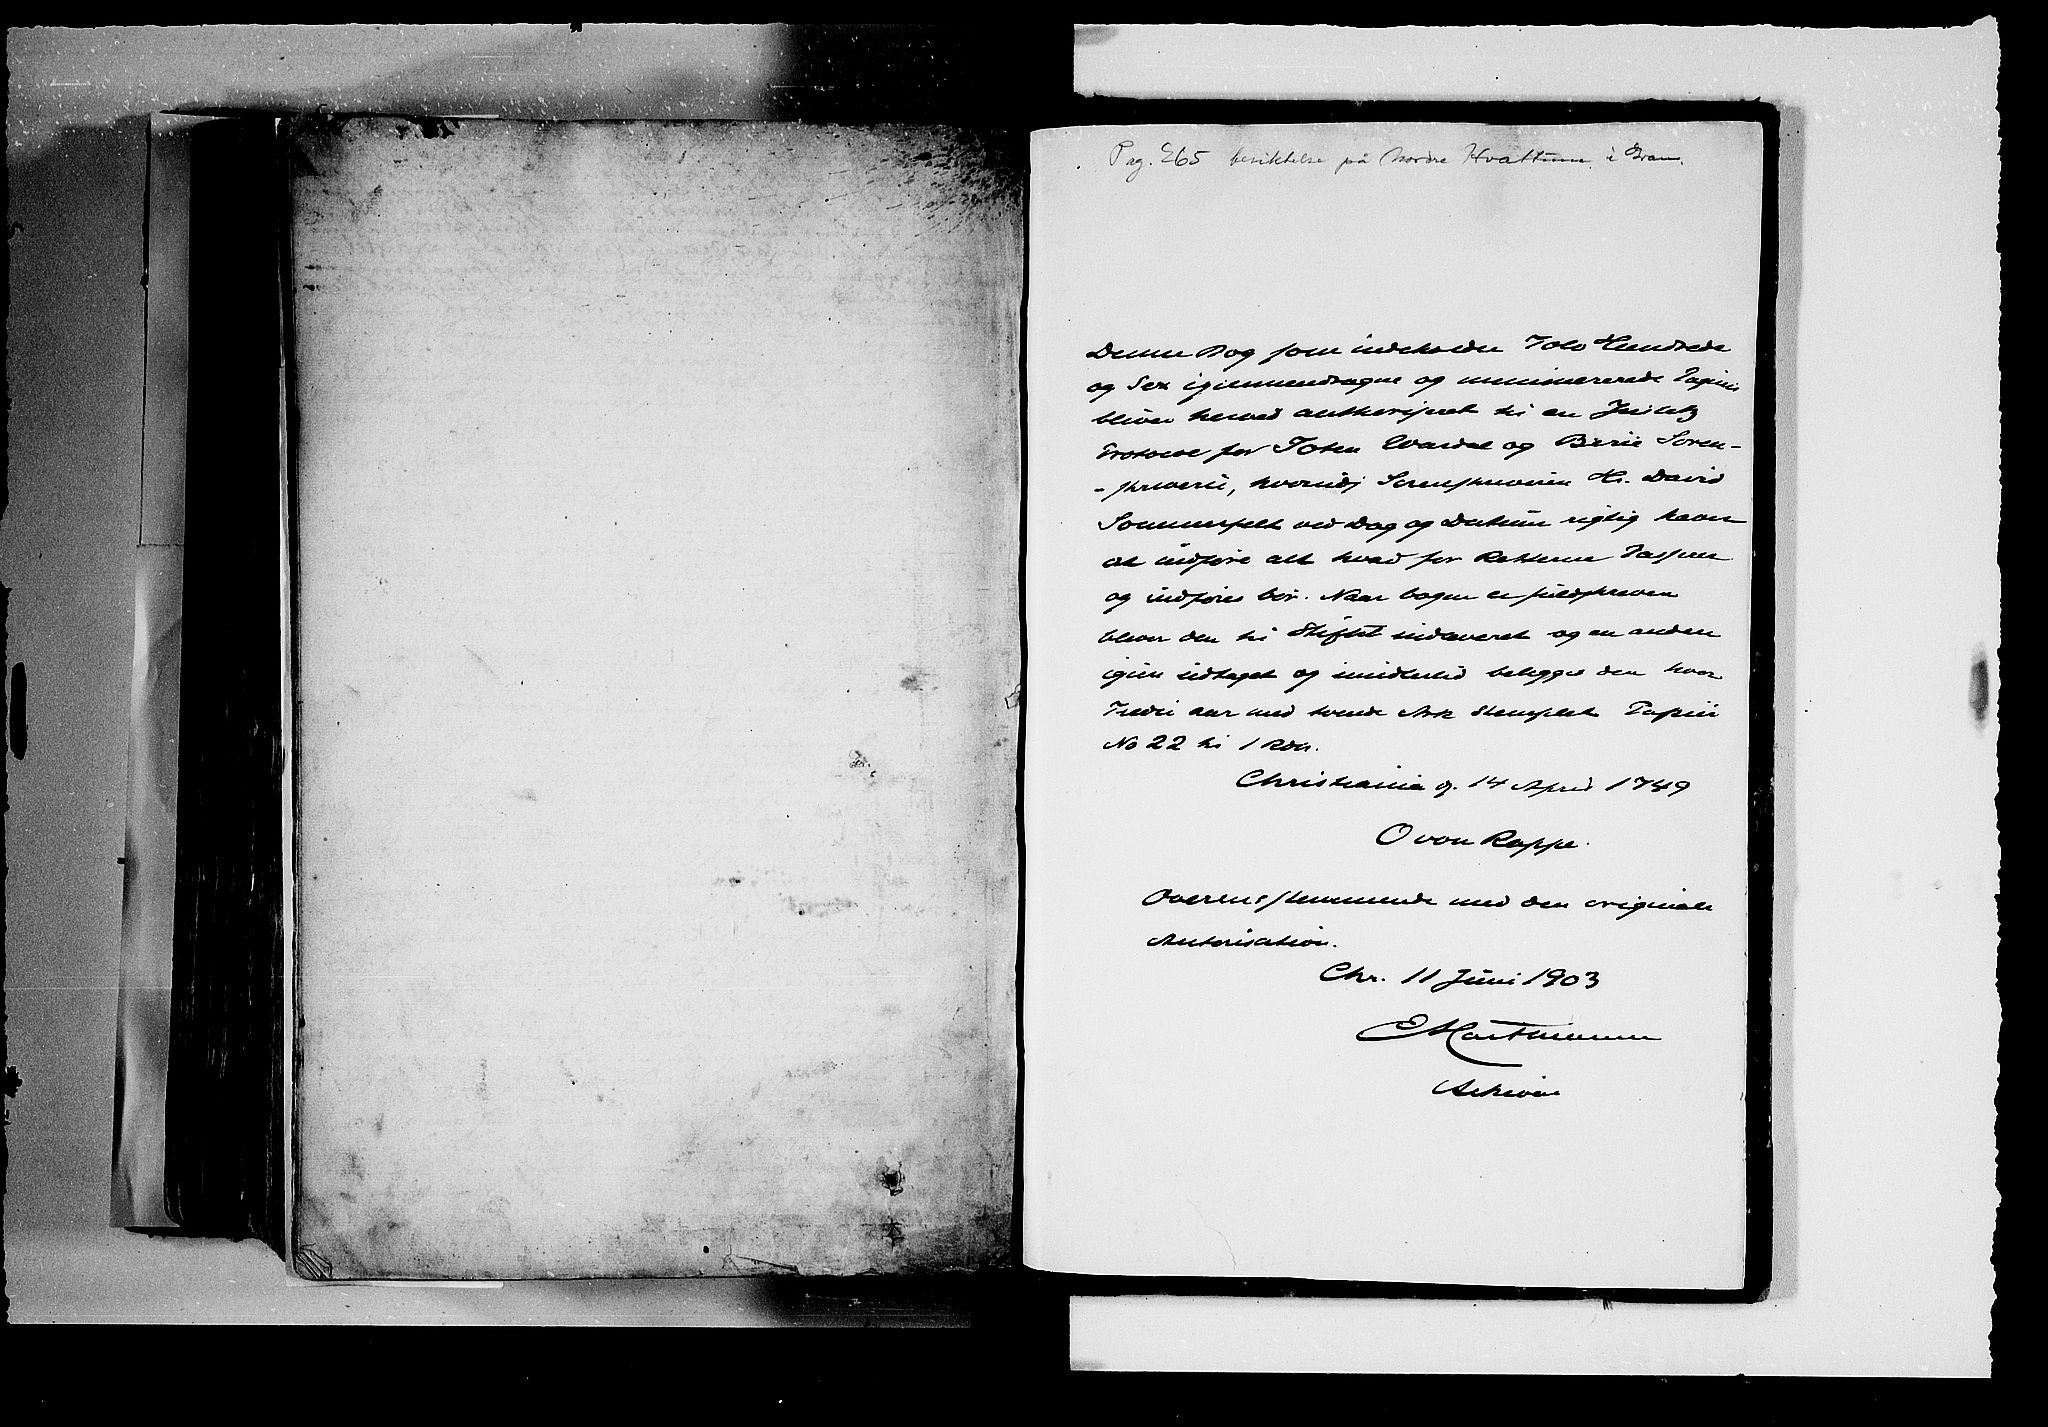 Pag. 265 besiktelse på Nordre Hvattum i Gran.
Denne Bog som indeholder Tolv Hundrede
og Sex igiennemdragne og nummererede Pagina
bliver herved authoriseret til en Justitz
Protocol for Toten Wardal og Birie Soren-
-skriverie, hvorudj Sorenskriveren Hr. David
Sommerfelt ved Dag og Datum rigtig haver
at indføre alt hvad for Retterne Passerer
og indføres bør. Naar bogen er fuldskreven
bliver den til Stiftet indleveret og en anden
igien udtaget og imidlertid belegges den hver
Tredie aar med tvende Ark Stemplet Papiir
No 22 til 1 Rdr.
Christiania d. 14 April 1749
O von Rappe.
Overensstemmende med den originale
Autorisation.
Chr. 11 Juni 1903
E Hartmann
Arkivar